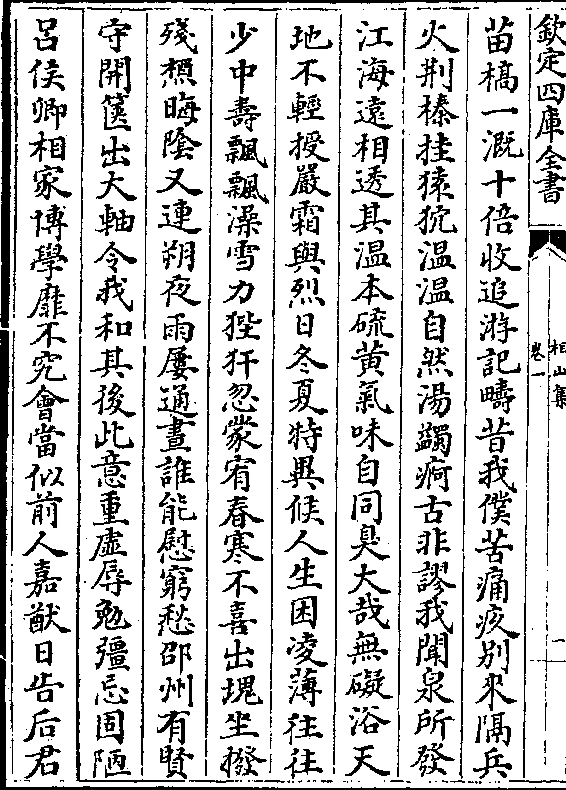 欽定四庫全書
相山集
卷一
苗槁一溉十倍收追游記疇昔我僕苦痛疚別來隔兵
火荆榛挂猿狖温温自然湯蠲痾古非謬我聞泉所發
江海遠相透其温本硫黄氣味自同臭大哉無礙浴天
地不輕授嚴霜與烈日冬夏特異候人生困凌薄往往
少中壽飄飄澡雪力狴犴忽蒙宥春寒不喜出塊坐撥
殘櫰晦陰又連朔夜雨屢通晝誰能慰窮愁邵州有賢
守開篋出大軸令我和其後此意重虚辱勉彊忘固陋
吕侯卿相家博學靡不究會當似前人嘉猷日告后君